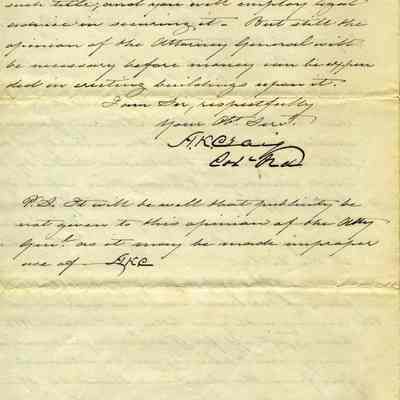 such title, and you will employ legal
advice in securing it. But still the
opinion of the Attorney General will
be necessary before money can be expen
ded in erecting buildings upon it.
I am Sir, respectfully
Your Ob. Servt.
H.K. Craig
Col. Ord
P.S. It will be well that publicity be
not given to this opinion of the Atty
Genl. as it may be made improper
use of HKC